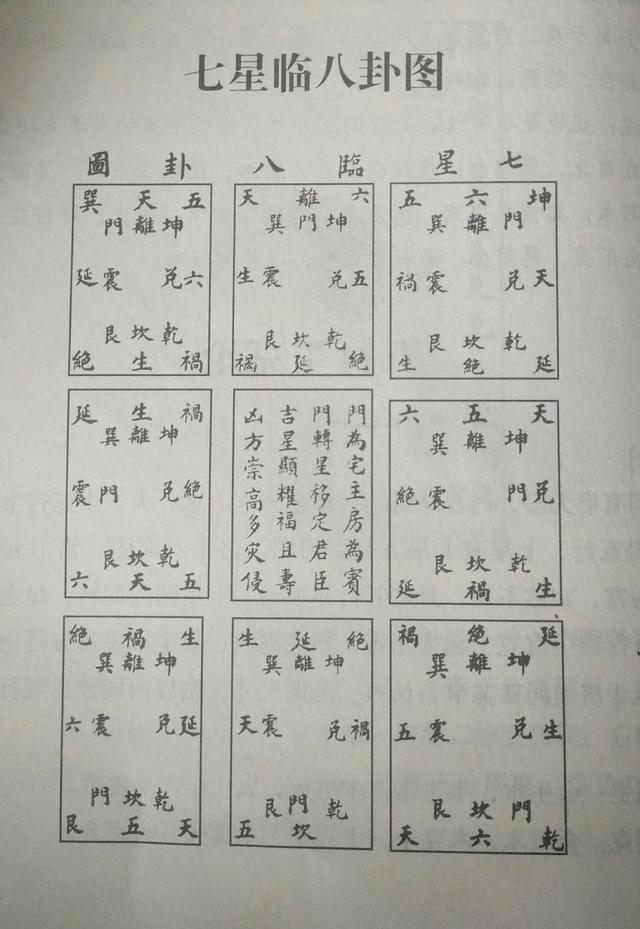 七星临八卦图
七星臨八卦圖
巽天五
門離坤
延震兌六
艮坎乾
絕生禍
天離六
巽門坤
生震兌五
艮坎乾
禍延絕
五六坤
巽離門
禍震兌天
艮坎乾
生絕延
延生禍
巽離坤
震門兌絕
艮坎乾
六天五
門為宅主房為賓
門轉星移定君臣
吉星顯耀福且壽
凶方崇高多灾侵
六五天
巽離坤
絕震門兌
艮坎乾
延禍生
絕禍生
巽離坤
六震兌延
門坎乾
艮五天
生延絕
巽離坤
天震兌禍
艮門乾
五坎
禍絕延
巽離坤
五震兌生
艮坎門
天六乾